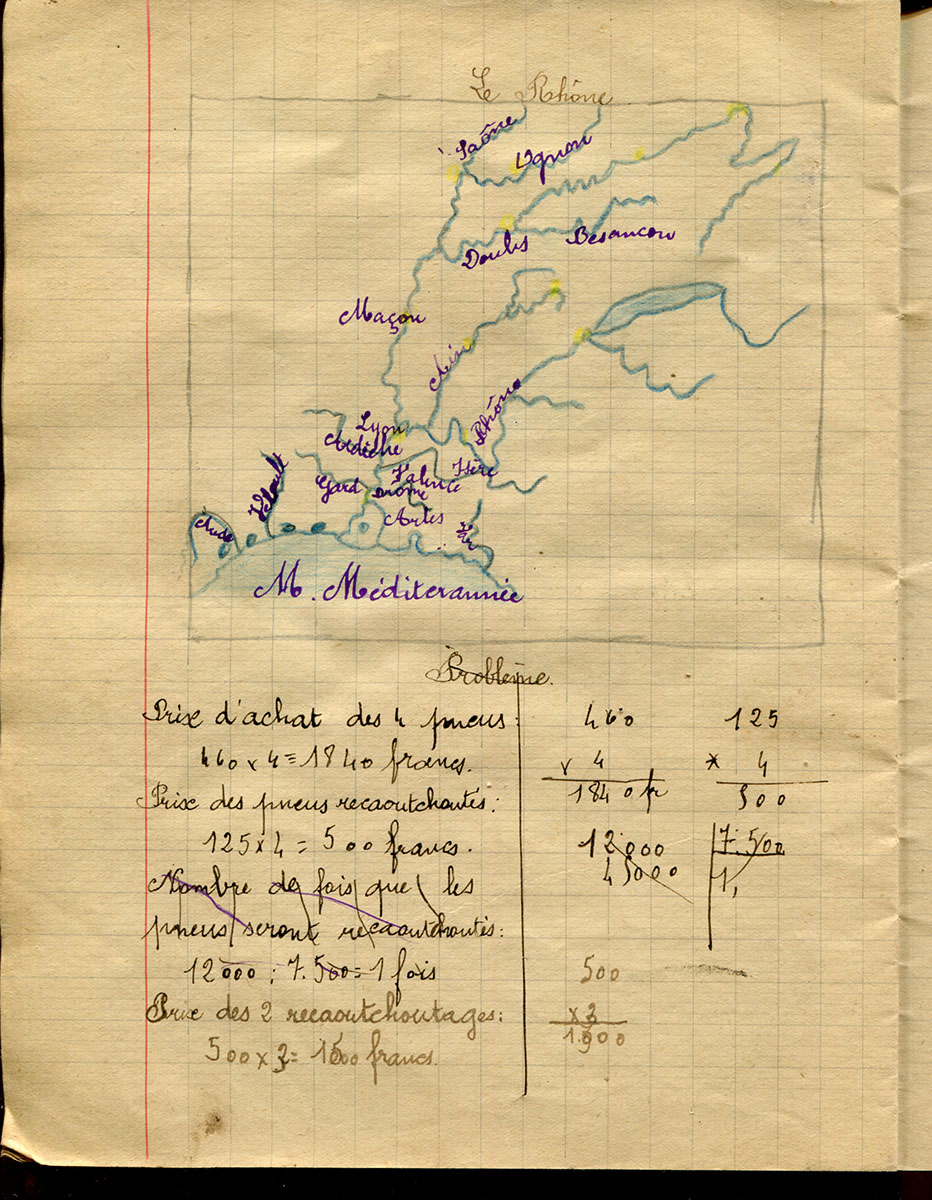 Le Rhône
Saône
Ognon
Doubs
Besancon
Maçon
Ain
Rhône
Lyon
Ardèche
Isère
Valence
Gard
Drôme
Hérault
Arles
Aude
Var
M. Méditerannée
Problème.
Prix d'achat des 4 pneus:
460 x 4 = 1840 francs.
Prix des pneus recaoutchoutés:
125 x 4 = 500 francs.
Nombre de fois que les
pneus seront recaoutchoutés:
12000 : 7.500 = 1 fois
Prix des 2 recaoutchoutages:
500 x 3 = 1500 francs.
460
x 4
1840 fr
125
x 4
500
12000 7.500
45000 1,
500
x 3
1.500